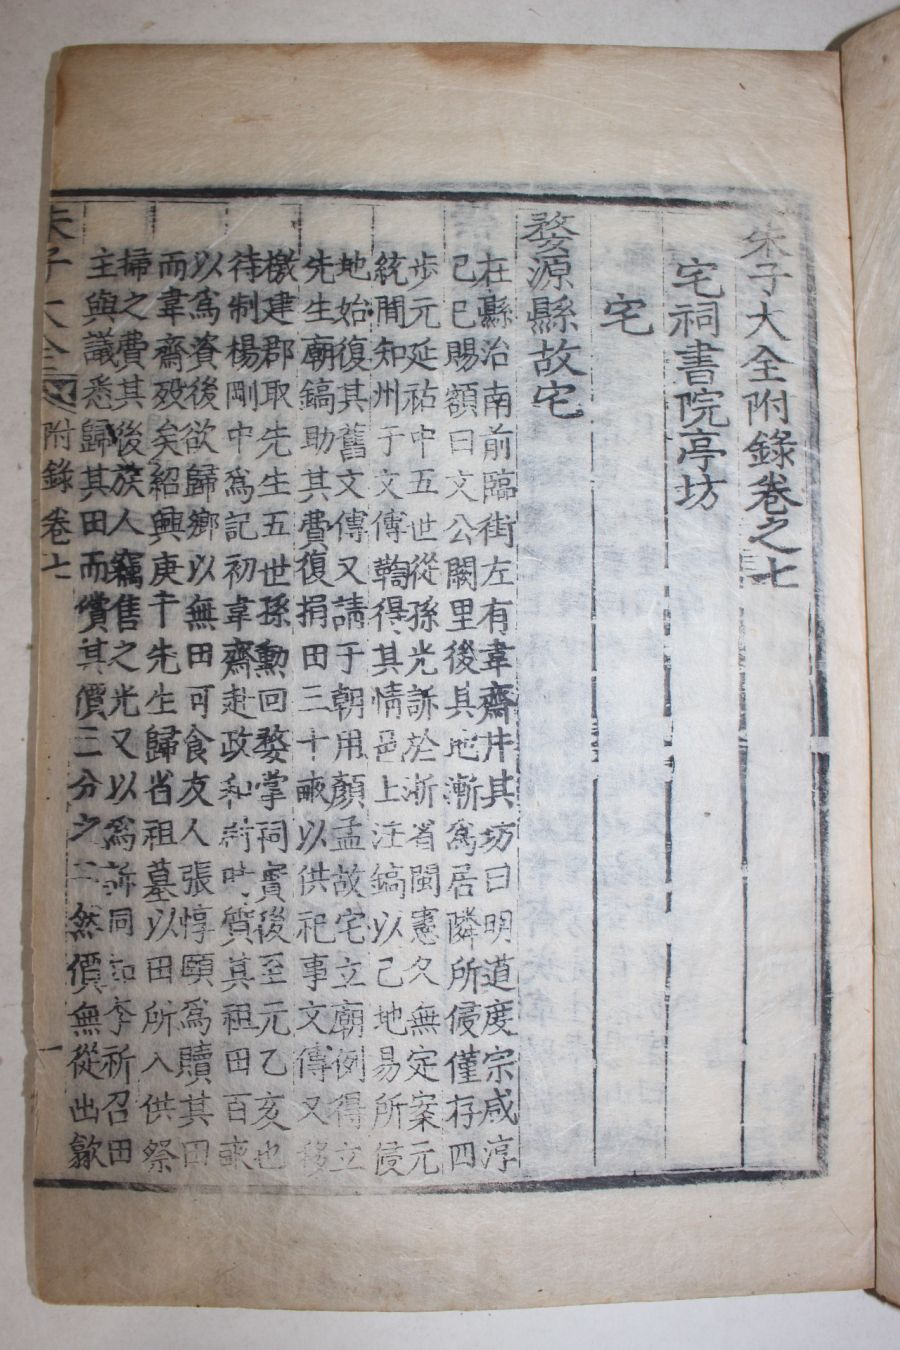 朱子大全附錄卷之七
宅祠書院亭坊
宅
婺源縣故宅
在縣治南前臨街左有韋齋井其坊曰明道度宗咸淳
己巳賜額曰文公闕里後其地漸爲居隣所侵僅存四
步元延祐中五世從孫光訴於浙省閩憲久無定案元
統間知州于文傳鞫得其情邑上汪鎬以己地易所侵
地始復其舊文傳又請于朝用顔孟故宅立廟例得立
先生廟鎬助其費復捐田三十畝以供祀事文傳又移
檄建郡取先生五世孫勳回婺掌祠實後至元乙亥也
待制楊剛中爲記初韋齋赴政和尉時質其祖田百畝
以爲資後欲歸鄉以無田可食友人張惇頤爲贖其田
而韋齋歿矣紹興庚午先生歸省祖墓以田所入供祭
掃之費其後族人竊售之光又以爲訴同知李祈召田
主與議悉歸其田而償其價三分之二然價無從出歙
朱子大全 附錄卷七 一